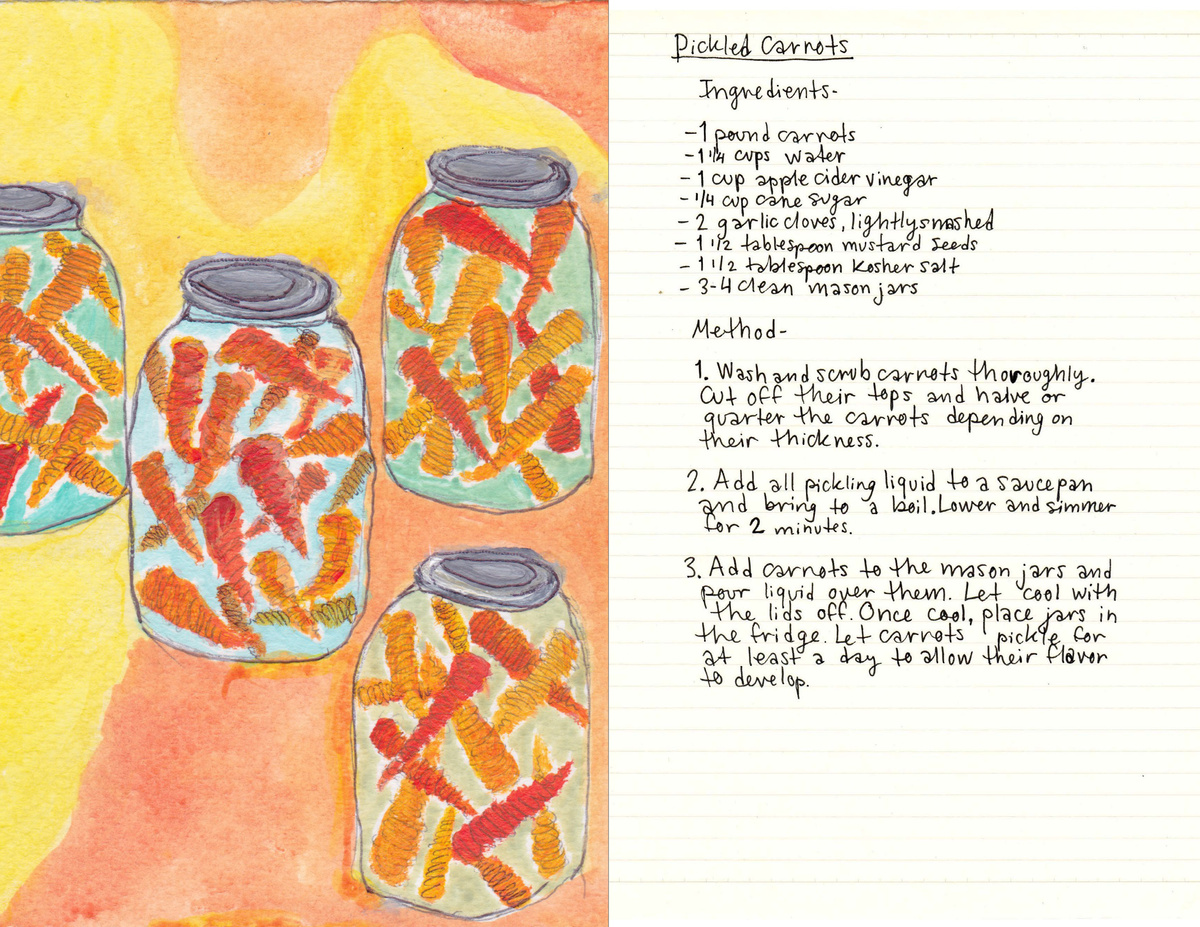 Pickled Carrots
Ingredients-
-1 pound carrots
-1 1/4 cups water
- 1 cup apple cider vinegar
- 1/4 cup cane sugar
- 2 garlic cloves, lightly smashed
- 1 1/2 tablespoon mustard seeds
- 1 1/2 tablespoon kosher salt
- 3-4 clean mason jars
Method-
1. Wash and scrub carrots thoroughly.
Cut off their tops and halve or
quarter the carrots depending on
their thickness.
2. Add all pickling liquid to a saucepan
and bring to a boil. Lower and simmer
for 2 minutes.
3. Add carrots to the mason jars and
pour liquid over them. Let cool with
the lids off. Once cool, place jars in
the fridge. Let carrots pickle for
at least a day to allow their flavor
to develop.